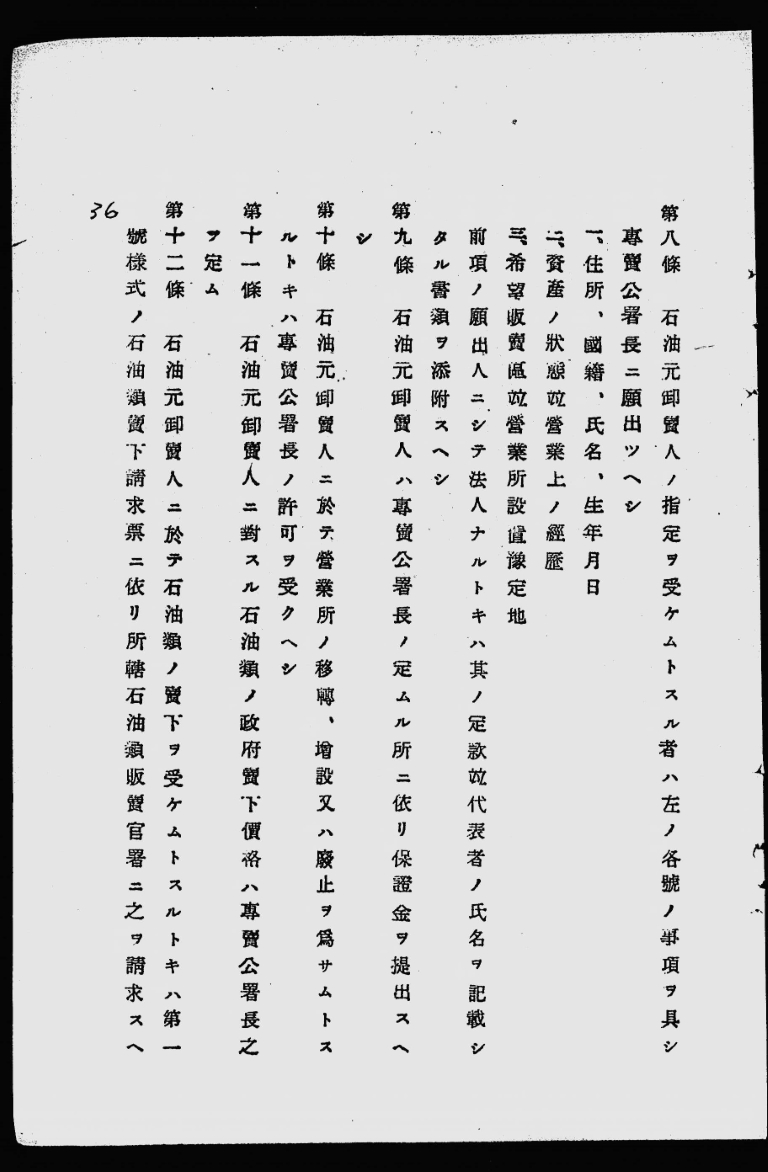 第八條　石油元卸賣人ノ指定ヲ受ケムトスル者ハ左ノ各號ノ事項ヲ具シ
專賣公署長ニ願出ツヘシ
一、住所、國籍、氏名、生年月日
二、資產ノ狀態竝營業上ノ經歷
三、希望販賣區竝營業所設置豫定地
前項ノ願出人ニシテ法人ナルトキハ其ノ定款竝代表者ノ氏名ヲ記載シ
タル書類ヲ添附スヘシ
第九條　石油元卸賣人ハ專賣公署長ノ定ムル所ニ依リ保證金ヲ提出スヘ
シ
第十條　石油元卸賣人ニ於テ營業所ノ移轉、增設又ハ廢止ヲ爲サムトス
ルトキハ專賣公署長ノ許可ヲ受クヘシ
第十一條　石油元卸賣人ニ對スル石油類ノ政府賣下價格ハ專賣公署長之
ヲ定ム
第十二條　石油元卸賣人ニ於テ石油類ノ賣下ヲ受ケムトスルトキハ第一
號樣式ノ石油類賣下請求票ニ依リ所轄石油類販賣官署ニ之ヲ請求スヘ
36